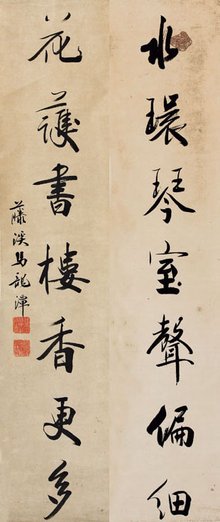 水環琴室聲偏細
花護書樓香更多
藤溪馬龍潭